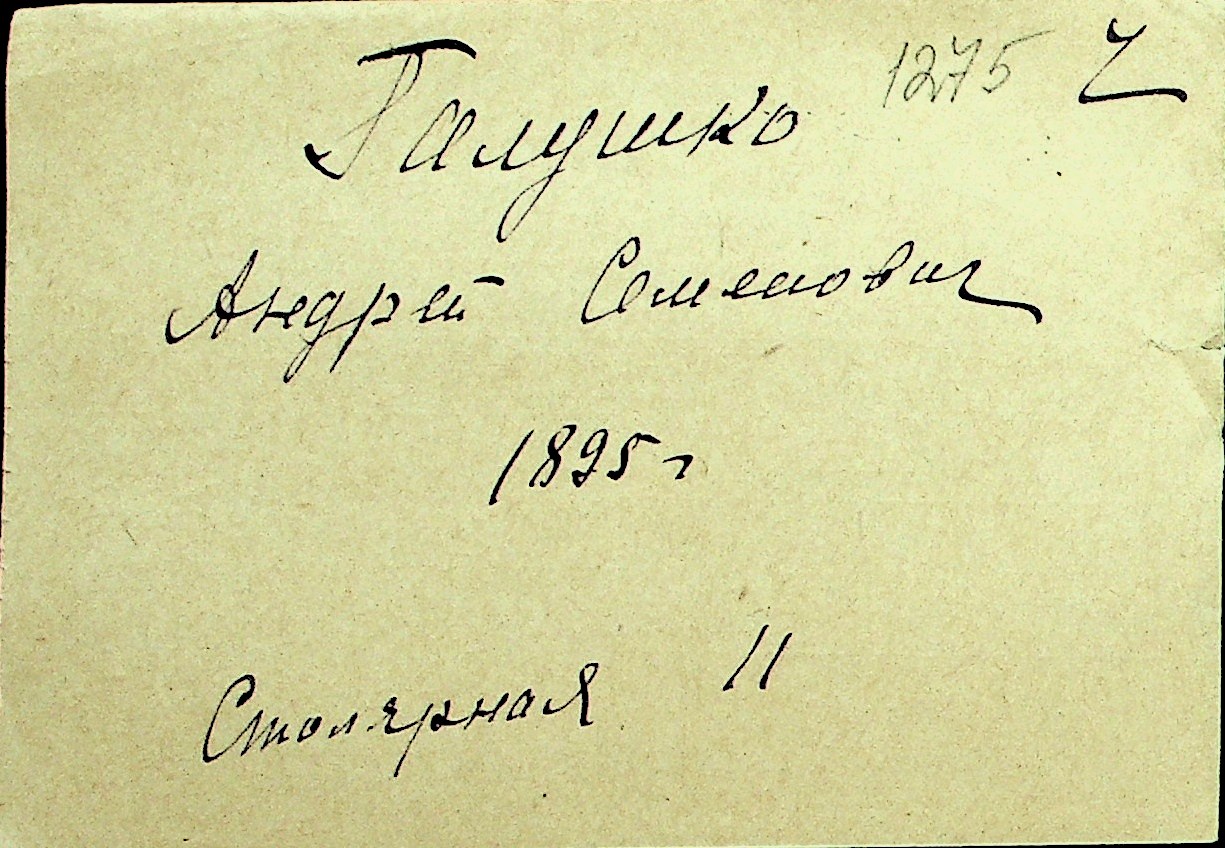 1275 Ч
Галушко
Андрей Семенович
1895 г
Столярная 11